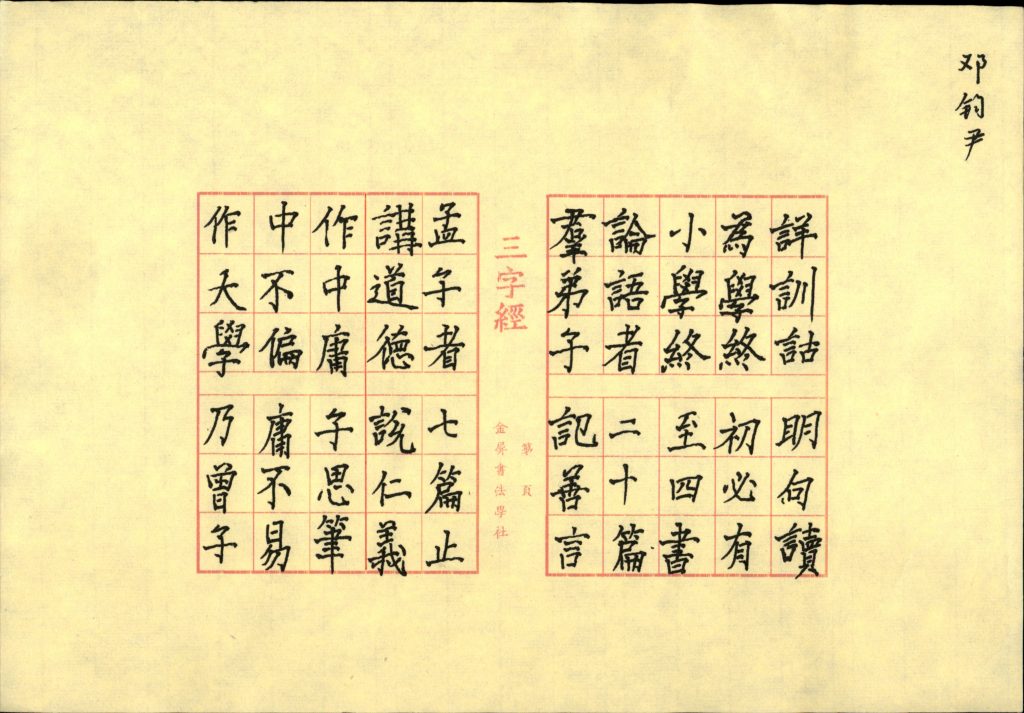 邓钧尹
詳訓詁 明句讀
為學終 初必有
小學終 至四書
論語者 二十篇
羣弟子 記善言
三字經
第 頁
金屏書法學社
孟子者 七篇止
講道德 說仁義
作中庸 子思筆
中不偏 庸不易
作大學 乃曾子